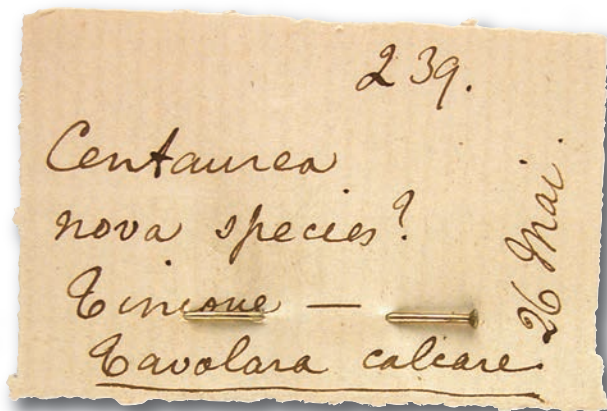 239.
Centaurea
nova species?
—
Tavolara calcare.
26 Mai